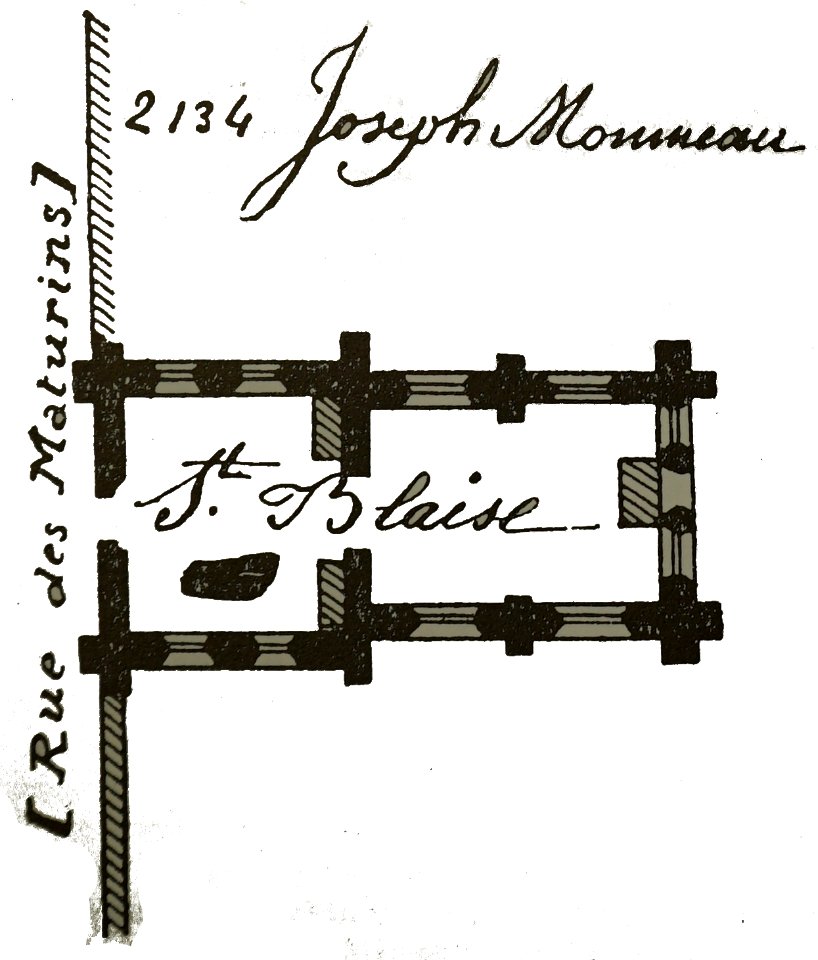 2134 Joseph Monmeau
[Rue des Maturins]
St. Blaise